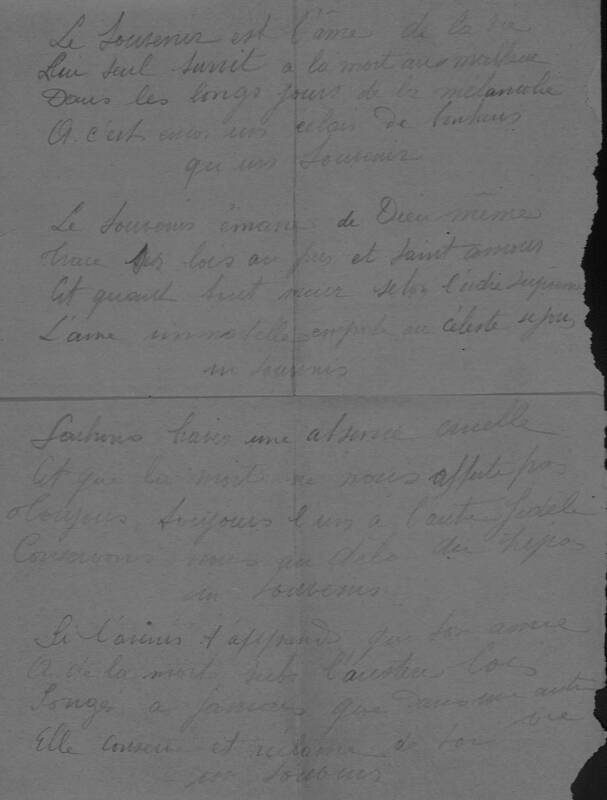 Le Souvenir est l'âme de la vie
Lui seul survit a la mort aux malheur
Dans les longs jours de la melancolie
A c'est encor un eclair de bonheur
qu'un Souvenir
Le Souvenir émane de Dieu même
trace ses lois au pur et saint amour
Et quant tout meur selon l'ordre suprème
L'ame immortelle emporte au céleste sejour
un souvenir
Sachons braver une absence cruelle
Et que la mort ne nous affecte pas
toujours, toujours l'un a l'autre fidèle
Conservons nous au dela du trépas
un Souvenir
Si l'avenir t'apprend que ton amie
A de la mort subi l'austère lois
Songe a jamais que dans une autre vie
Elle conserve et réclame de toi
un souvenir